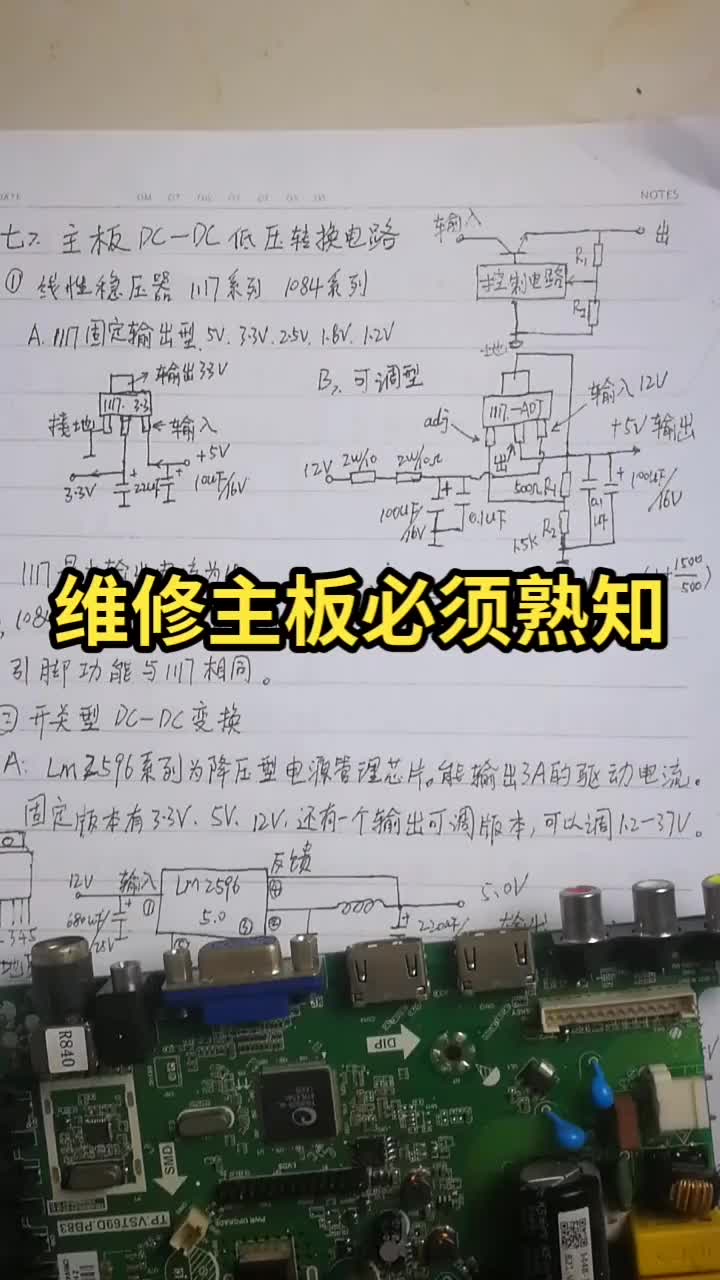 NOTES
七、主板DC-DC低压转换电路
输入
出
R1
控制电路
R2
地
① 线性稳压器 1117系列 1084系列
A. 1117固定输出型. 5V. 3.3V. 2.5V. 1.8V. 1.2V
输出3.3V
1117. 3.3
接地
输入
+5V
3.3V
22uF
10uF/16V
B、可调型
1117-ADJ
输入12V
adj
出
+5V输出
12V
2W/10
2W/10Ω
500Ω R1
100uF/16V
0.1uF
R2
1.5K
0.1uF
100uF/16V
1500
500
维修主板必须熟知
引脚功能与1117相同。
开关型 DC-DC变换
A: Lm2596系列为降压型电源管理芯片。能输出3A的驱动电流。
固定版本有3.3V、5V、12V、还有一个输出可调版本,可以调1.2-37V。
12V
输入
①
Lm2596
5.0
反馈
④
②
③
5.0V
680uF/25V
输出
345
R840
DIP
SMD
TP.VST69D.PB83